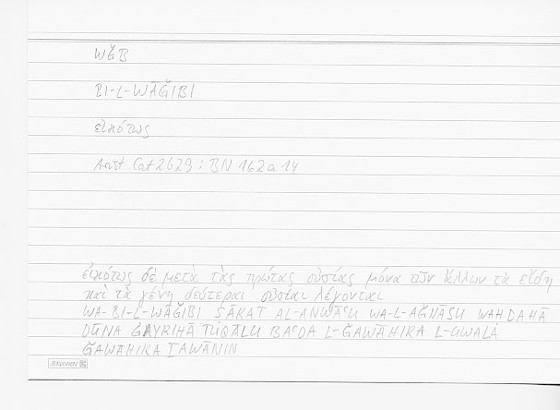 WĞB
BI-L-WĀĞIBI
εἰκότως
Arist Cat 2b29 : BN 162a14
εἰκότως δὲ μετὰ τὰς πρώτας οὐσίας μόνα τῶν ἄλλων τὰ εἴδη
καὶ τὰ γένη δεύτεραι οὐσίαι λέγονται
WA-BI-L-WĀĞIBI ṢĀRAT AL-ANWĀʿU WA-L-AĞNĀSU WAḤDAHĀ
DŪNA ĠAYRIHĀ TUQĀLU BAʿDA L-ĞAWĀHIRA L-UWALĀ
ĞAWĀHIRA ṮAWĀNIN